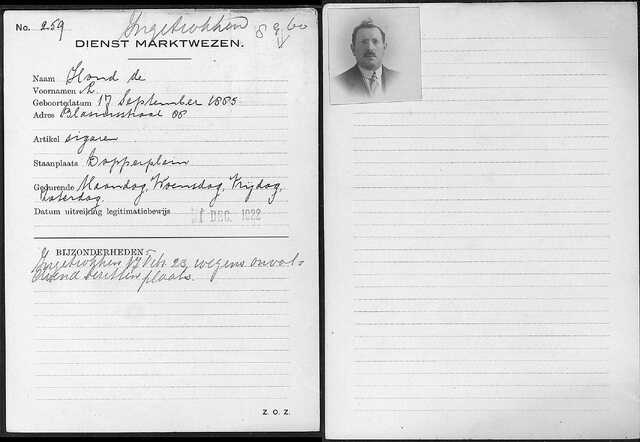 No. 259 Ingetrokken
DIENST MARKTWEZEN.
Naam Hond de
Voornamen A.
Geboortedatum 17 September 1885
Adres Blasiusstraat 88
Artikel sigaren
Staanplaats Dapperplein
Gedurende Maandag, Woensdag, Vrijdag,
Zaterdag.
Datum uitreiking legitimatiebewijs DEC. 1922
BIJZONDERHEDEN
Ingetrokken 17 Feb. 23 wegens onvol-
doend bezetten plaats.
Z. O. Z.